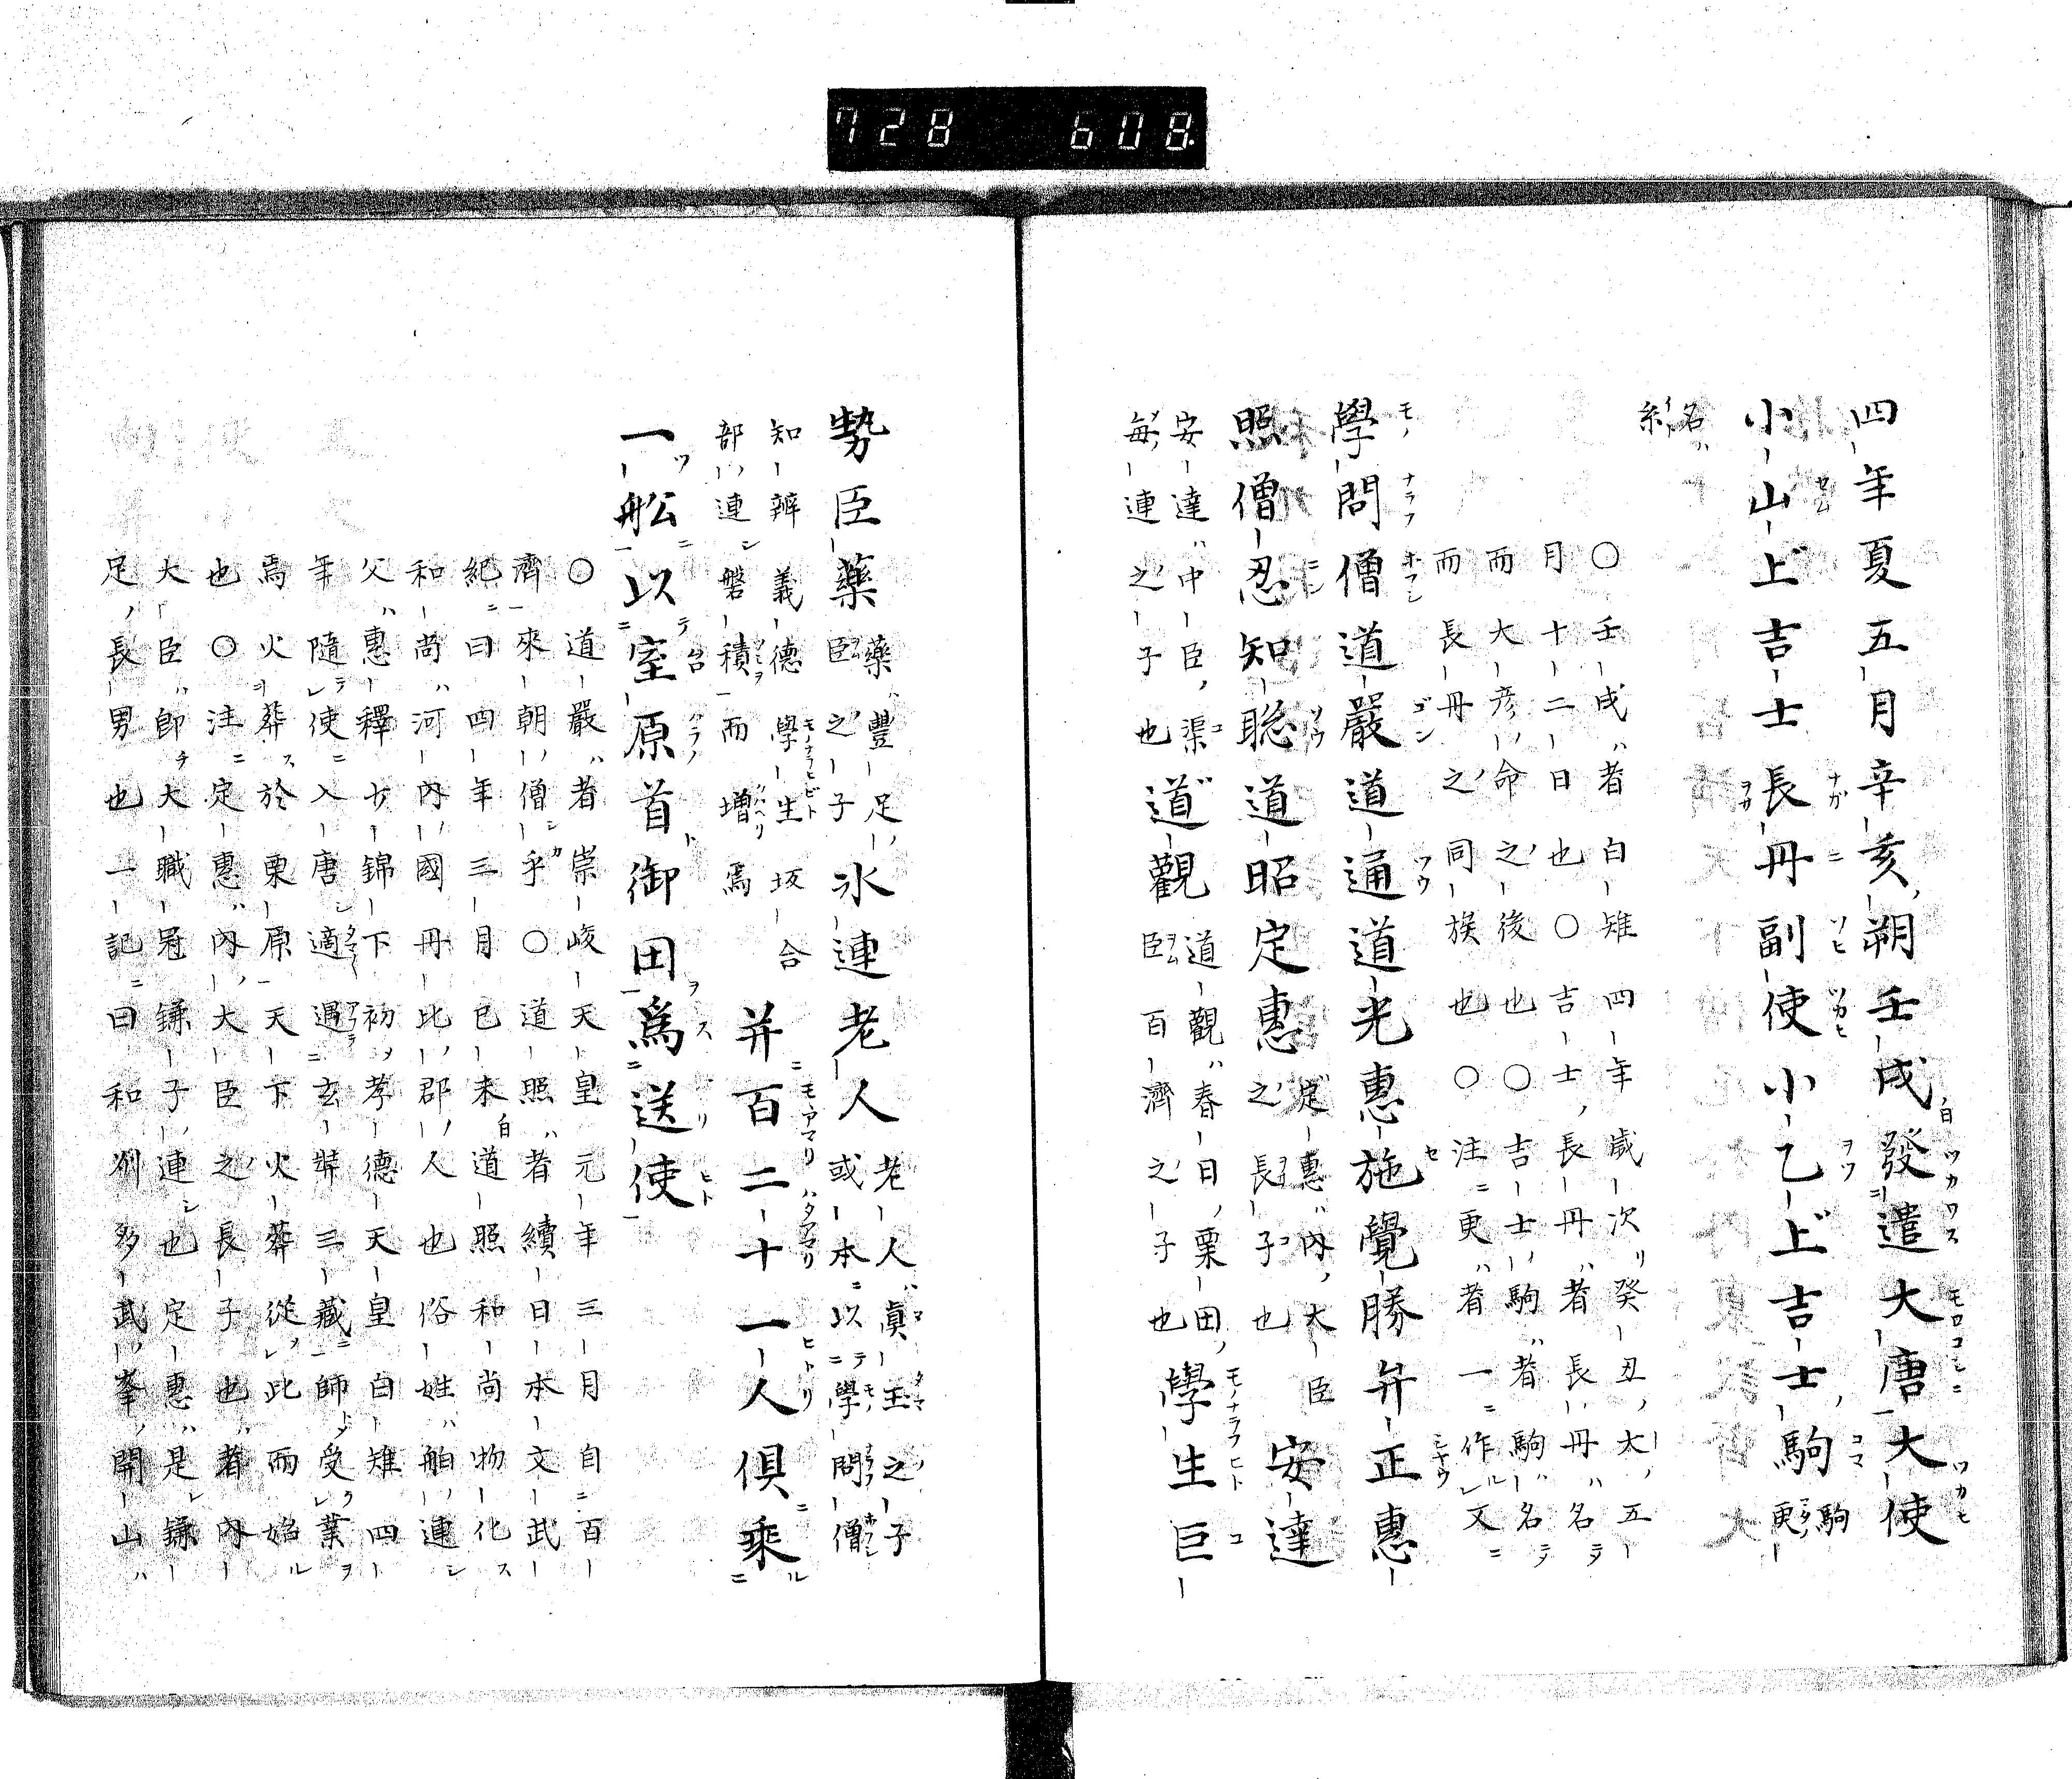 728 608
四年夏五月辛亥朔壬戌發遣大唐大使
小山上吉士長丹副使小乙上吉士駒駒更
名糸
○壬戌者白雉四年歳次癸丑太五
月十二日也○吉士長丹者長丹名
而大彦命之後也○吉士駒者駒名
而長丹之同族也○注更者一作文
學問僧道嚴道通道光惠施覺勝弁正惠
照僧忍知聡道昭定惠定惠内大臣之長子也安達
安達中臣渠毎連之子也道觀道觀春日粟田臣百濟之子也學生巨
勢臣藥藥豐足臣之子也氷連老人老人眞玉之子或本以學問僧
知辨義德學生坂合部連磐積而増焉并百二十一人倶乘
一舩以室原首御田爲送使
○道嚴者崇峻天皇元年三月自百
濟來朝僧乎○道照者續日本文武
紀曰四年三月己未道照和尚物化
和尚河内國丹比郡人也俗姓舶連
父惠釋少錦下初孝德天皇白雉四
年隨使入唐適遇玄弉三藏師受業
焉火葬於栗原天下火葬從此而始
也○注定惠内大臣之長子也者内
大臣即大職冠鎌子連也定惠是鎌
足長男也一記曰和州多武峯開山